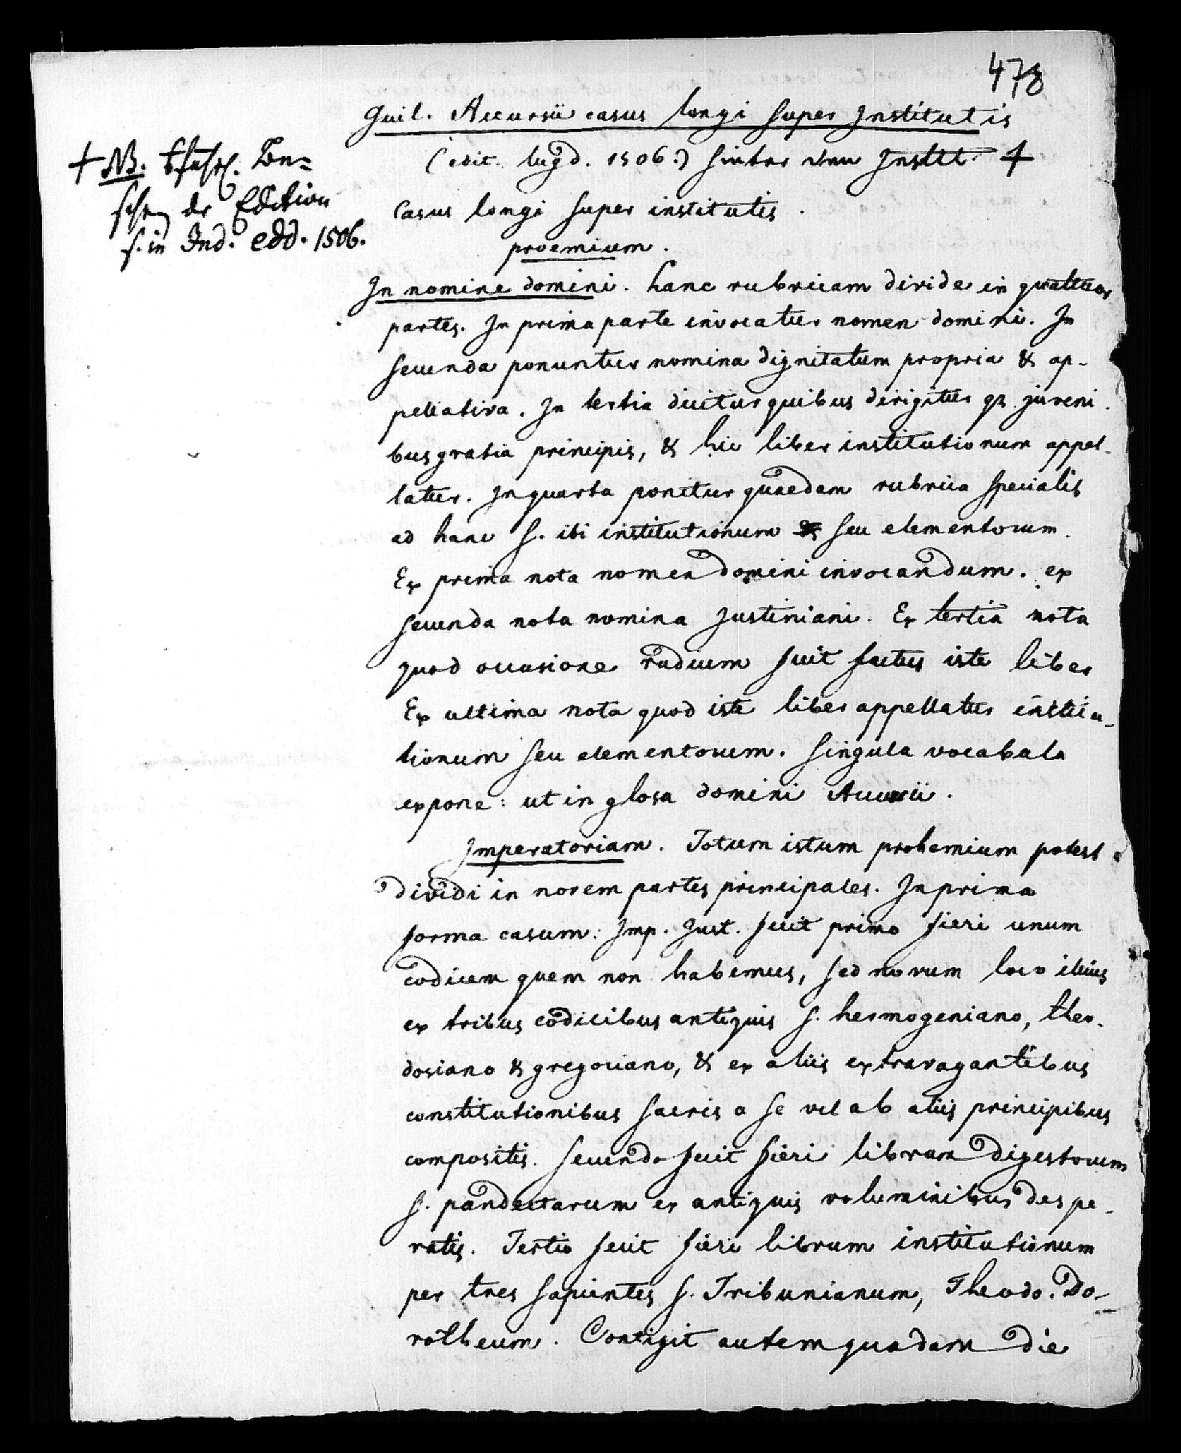 478
Guil. Accursii casus longi super Institutis
(edit. lugd. 1506.) hinter dem Instit. +
+ NB.
der Edition
s. in Ind. edd. 1506.
Casus longi super institutis.
proemium.
In nomine domini. hanc rubricam divide in quattuor
partes. In prima parte invocatur nomen domini. In
secunda ponuntur nomina dignitatum propria & ap-
pellativa. In tertia dicitur quibus dirigitur qz juveni
bus gratia principis, & hic liber institutionum appel-
latur. In quarta ponitur quaedam rubrica specialis
ad hanc s. ibi institutionum seu elementorum.
Ex prima nota nomen domini invocandum. ex
secunda nota nomina Justiniani. Ex tertia nota
quod occasione rudium fuit factus iste liber
Ex ultima nota quod iste liber appellatur institu-
tionum seu elementorum. Singula vocabula
expone: ut in glosa domini Accursii.
Imperatoriam. Totum istum prohemium potest
dividi in novem partes principales. In prima
forma casum: Imp. Just. fecit primo fieri unum
codicem quem non habemus, sed novum loco illius
ex tribus codicibus antiquis s. hermogeniano, theo-
dosiano & gregoriano, & ex aliis extravagantibus
constitutionibus sacris a se vel ab aliis principibus
compositis. Secundo fecit fieri librum digestorum
s. pandectarum ex antiquis voluminibus despe-
ratis. Tertio fecit fieri librum institutionum
per tres sapientes s. Tribunianum, Theodo. Do-
rotheum. Contigit autem quadam die